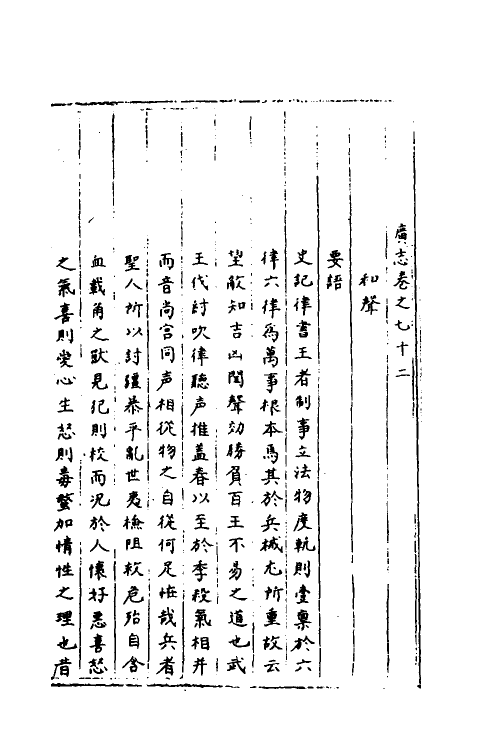 廣志卷之七十二
和聲
要語
史記律書王者制事立法物度軌則壹禀於六
律六律爲萬事根本焉其於兵械尤所重故云
望敵知吉凶聞聲効勝負百王不易之道也武
王伐討吹律聴声推孟春以至於季殺氣相并
而音尚宫同声相從物之自從何足恠哉兵者
聖人所以討彊暴平亂世夷險阻救危殆自含
血載角之獸見犯則校而况於人懷好惡喜怒
之氣喜則愛心生怒則毒螫加情性之理也昔